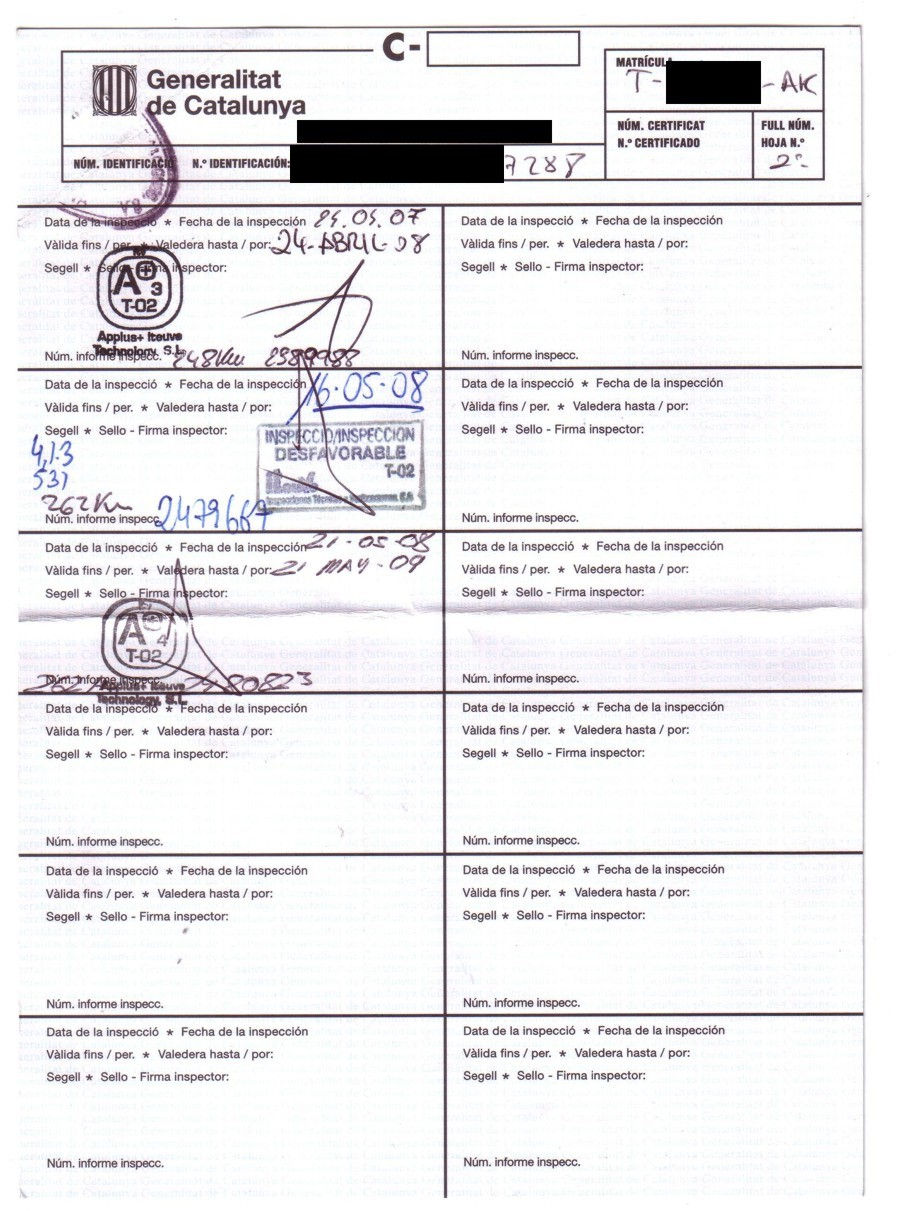 C-
Generalitat
de Catalunya
MATRÍCULA
T- -AK
NÚM. CERTIFICAT
N.º CERTIFICADO
FULL NÚM.
HOJA N.º
2º
NÚM. IDENTIFICACIÓ N.º IDENTIFICACIÓN: 7288
Data de la inspecció * Fecha de la inspección 24.04.07
Vàlida fins / per. * Valedera hasta / por: 24-ABRIL-08
Segell * Sello - Firma inspector:
A+ 3
T-02
Applus+ Iteuve
Technology, S.L.
Núm. informe inspecc. 248Km 2389988
Data de la inspecció * Fecha de la inspección 16-05-08
Vàlida fins / per. * Valedera hasta / por:
Segell * Sello - Firma inspector:
4,1.3
531
INSPECCIÓ/INSPECCION
DESFAVORABLE
T-02
262Km
Núm. informe inspecc. 2479667
Data de la inspecció * Fecha de la inspección 21-05-08
Vàlida fins / per. * Valedera hasta / por: 21 MAY-09
Segell * Sello - Firma inspector:
A 4
T-02
Núm. informe inspecc. 2480823
Applus+ Iteuve
Technology, S.L.
Data de la inspecció * Fecha de la inspección
Vàlida fins / per. * Valedera hasta / por:
Segell * Sello - Firma inspector:
Núm. informe inspecc.
Data de la inspecció * Fecha de la inspección
Vàlida fins / per. * Valedera hasta / por:
Segell * Sello - Firma inspector:
Núm. informe inspecc.
Data de la inspecció * Fecha de la inspección
Vàlida fins / per. * Valedera hasta / por:
Segell * Sello - Firma inspector:
Núm. informe inspecc.
Data de la inspecció * Fecha de la inspección
Vàlida fins / per. * Valedera hasta / por:
Segell * Sello - Firma inspector:
Núm. informe inspecc.
Data de la inspecció * Fecha de la inspección
Vàlida fins / per. * Valedera hasta / por:
Segell * Sello - Firma inspector:
Núm. informe inspecc.
Data de la inspecció * Fecha de la inspección
Vàlida fins / per. * Valedera hasta / por:
Segell * Sello - Firma inspector:
Núm. informe inspecc.
Data de la inspecció * Fecha de la inspección
Vàlida fins / per. * Valedera hasta / por:
Segell * Sello - Firma inspector:
Núm. informe inspecc.
Data de la inspecció * Fecha de la inspección
Vàlida fins / per. * Valedera hasta / por:
Segell * Sello - Firma inspector:
Núm. informe inspecc.
Data de la inspecció * Fecha de la inspección
Vàlida fins / per. * Valedera hasta / por:
Segell * Sello - Firma inspector:
Núm. informe inspecc.